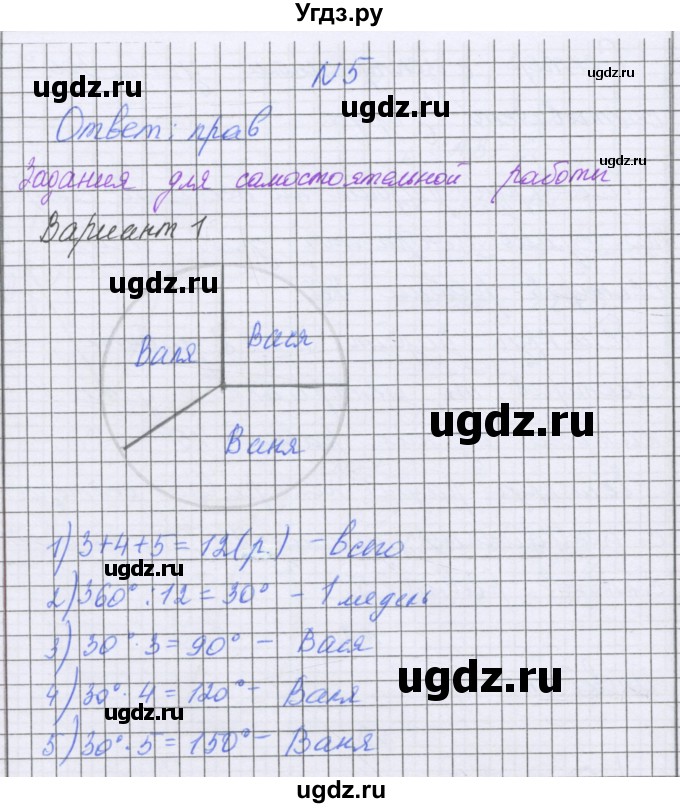 Угдз.ру
ugdz.ru ugdz.ru
N5
ugdz.ru
Ответ: прав
ugdz.ru
Задания для самостоятельной работы
Вариант 1
ugdz.ru
Валя Вася
ugdz.ru
Ваня
1) 3+4+5=12(р.) - всего
ugdz.ru
2) 360° : 12 = 30° - 1 медень
3) 30° · 3 = 90° - Вася
ugdz.ru
4) 30° · 4 = 120° - Валя
ugdz.ru
5) 30° · 5 = 150° - Ваня
ugdz.ru